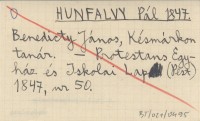 HUNFALVY Pál 1847.
Benedicty János, Késmárkon
tanár. — Protestans Egy-
ház és Iskolai Lap (Pest)
1847, nr 50.